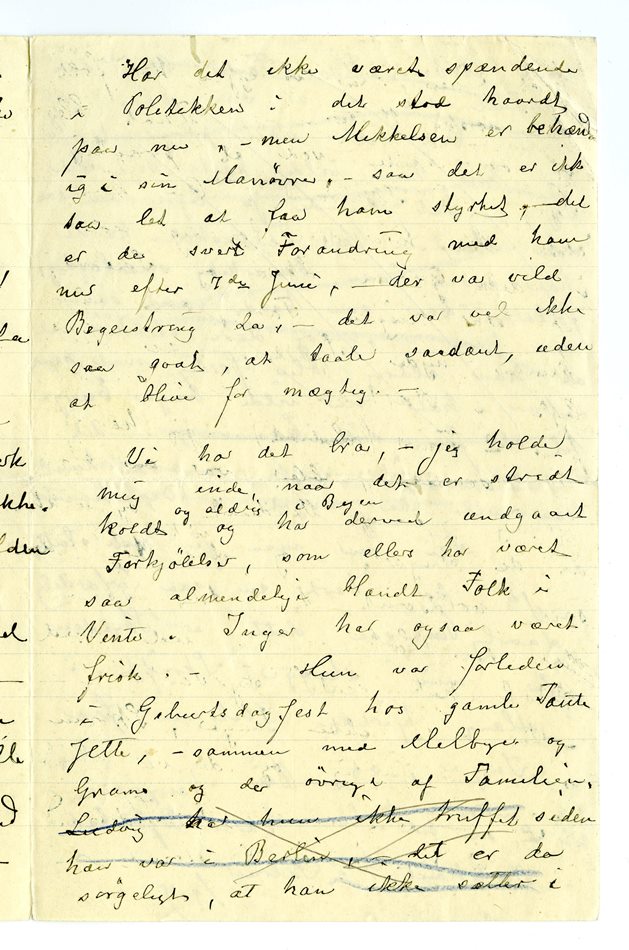 Har det ikke været spændende
i Politikken i det stod haardt
paa nu, – men Mikkelsen er behænd-
ig i sin Manøvre, – saa det er ikke
saa let at faa ham styrtet, – det
er da svært Forandring med ham
nu efter 7de Juni, – der va vild
Begeistring da, – det var vel ikke
saa godt, at taale saadant, uden
at blive for mægtig. –
Vi har det bra, – jeg holde
mig inde naar det er stridt
koldt og aldrig i Byen og har derved undgaaet
Forkjølelser, som ellers har været
saa almendelige blandt Folk i
Vinter. Inger har ogsaa været
frisk. – Hun var forleden
i Geburtsdagfest hos gamle Tante
Jette, – sammen med Melbye og
Grams og de øvrige af Familien.
Ludvig har hun ikke truffet siden
han var i Berlin, – det er da
sørgeligt, at han ikke sætter i